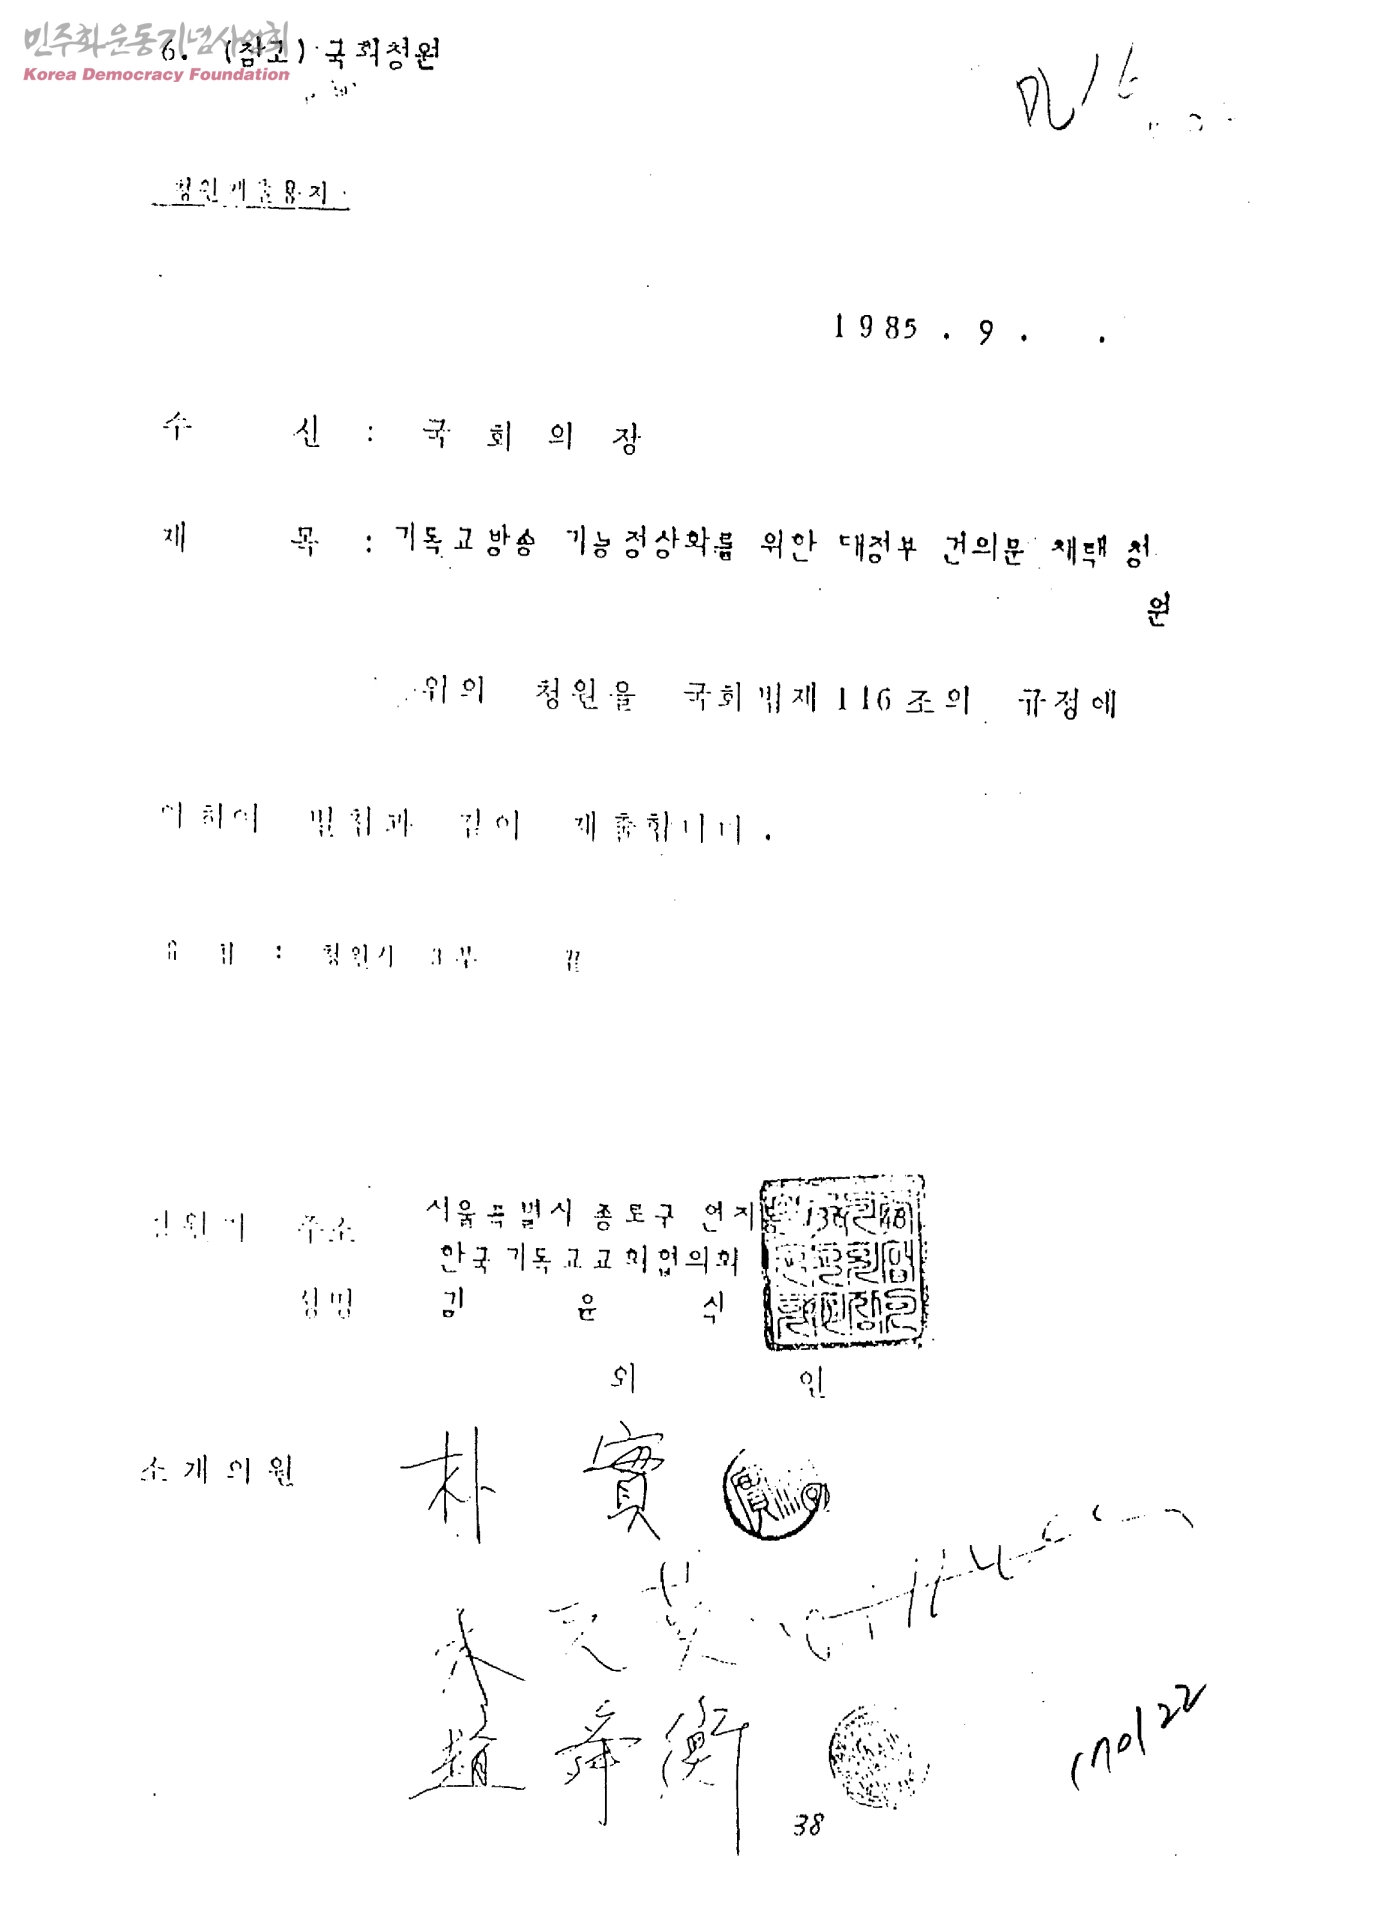 민주화운동기념사업회
Korea Democracy Foundation
6. (참고) 국회청원
청원제출용지
1985 . 9 . .
수 신 : 국 회 의 장
제 목 : 기독교방송 기능정상화를 위한 대정부 건의문 채택 청
원
위의 청원을 국회법제 116 조의 규정에
의하여 별첨과 같이 제출합니다 .
유 첨 : 청원서 3 부 끝
청원인 주소 서울특별시 종로구 연지동
한국기독교교회협의회
성명 김 윤 식
외 인
소개의원 朴 實
趙 舜 衡
38